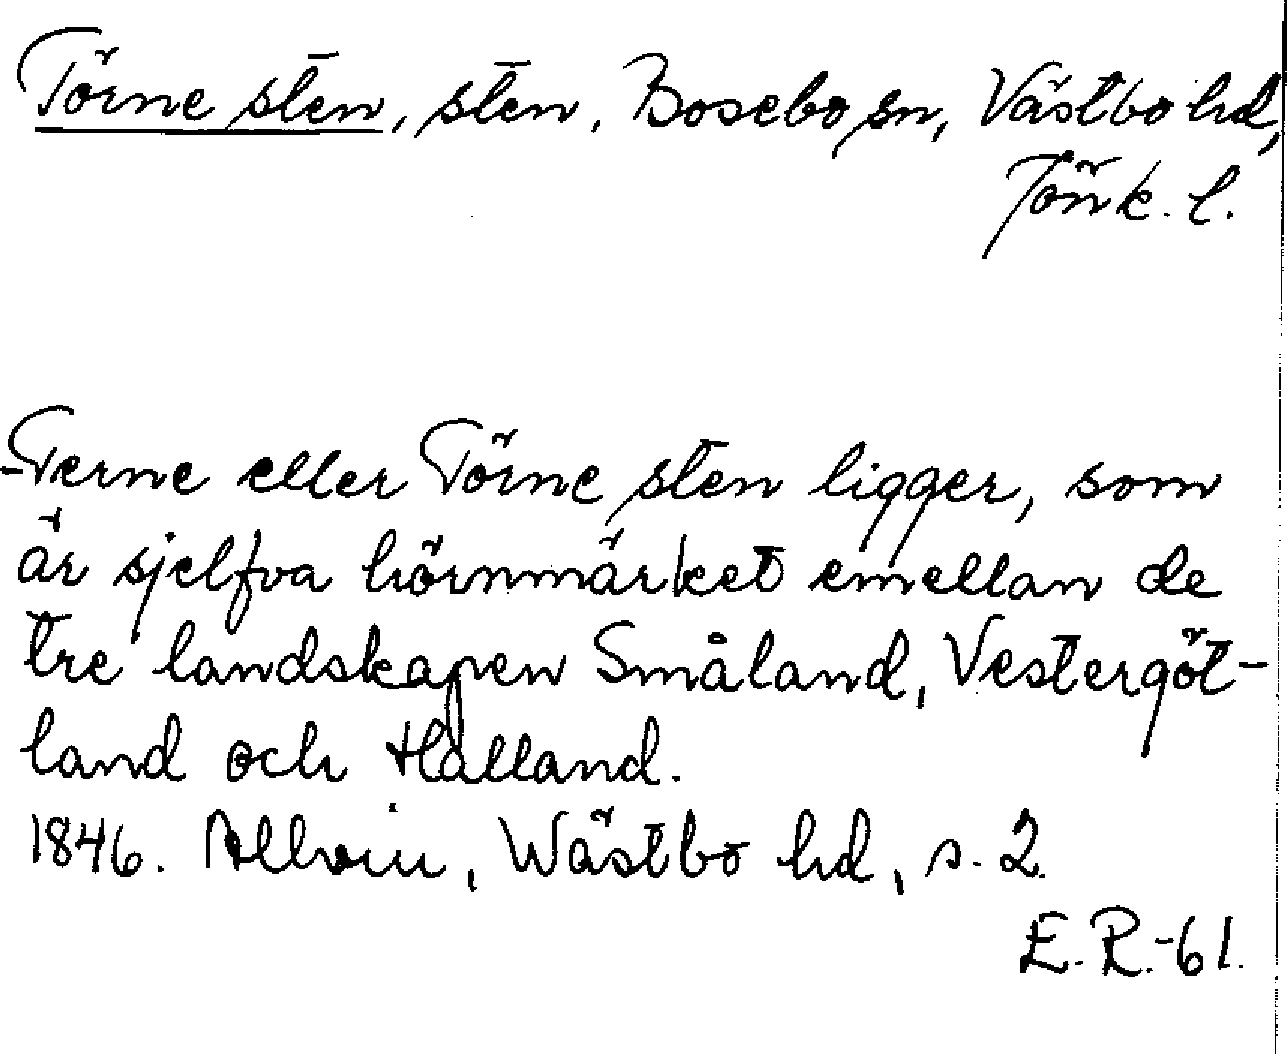 Törne sten, sten, Bosebo sn, Västbo hd,
Jönk. l.
Terne eller Törne sten ligger, som
är sjelfva hörnmärket emellan de
tre landskapen Småland, Vestergöt-
land och Halland.
1846. Allvin, Wästbo hd, s. 2.
E.R.-61.